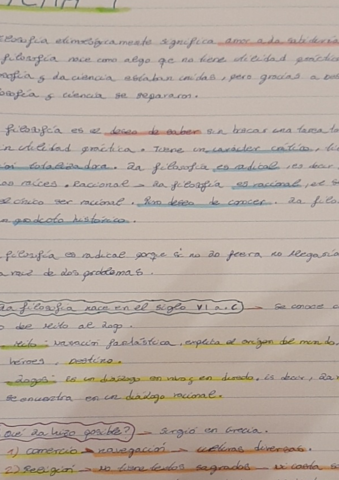 TEMA 1
filosofía etimológicamente significa amor a la sabiduría
filosofía nace como algo que no tiene utilidad práctica
y la ciencia estaban unidas, pero gracias a
y ciencia se separaron.
filosofía es el deseo de saber sin buscar una
utilidad práctica. Tiene un carácter crítico,
totalizadora. La filosofía es radical, es decir
raíces. Racional - la filosofía es racional, el
clásico ser racional. Por deseo de conocer. La
producto histórico.
filosofía es radical porque si no lo fuera no llegaría
raíz de los problemas.
la filosofía nace en el siglo VI a.C → se conoce
del Mito al logo.
Mito: narración fantástica, explica el origen del mundo,
héroes, destino.
Logos: es un diálogo en uno, es decir, la
se encuentra en un diálogo racional.
¿Qué la hizo posible? → surgió en Grecia.
1) comercio → navegación → culturas diversas.
2) Religión → no tiene textos sagrados →